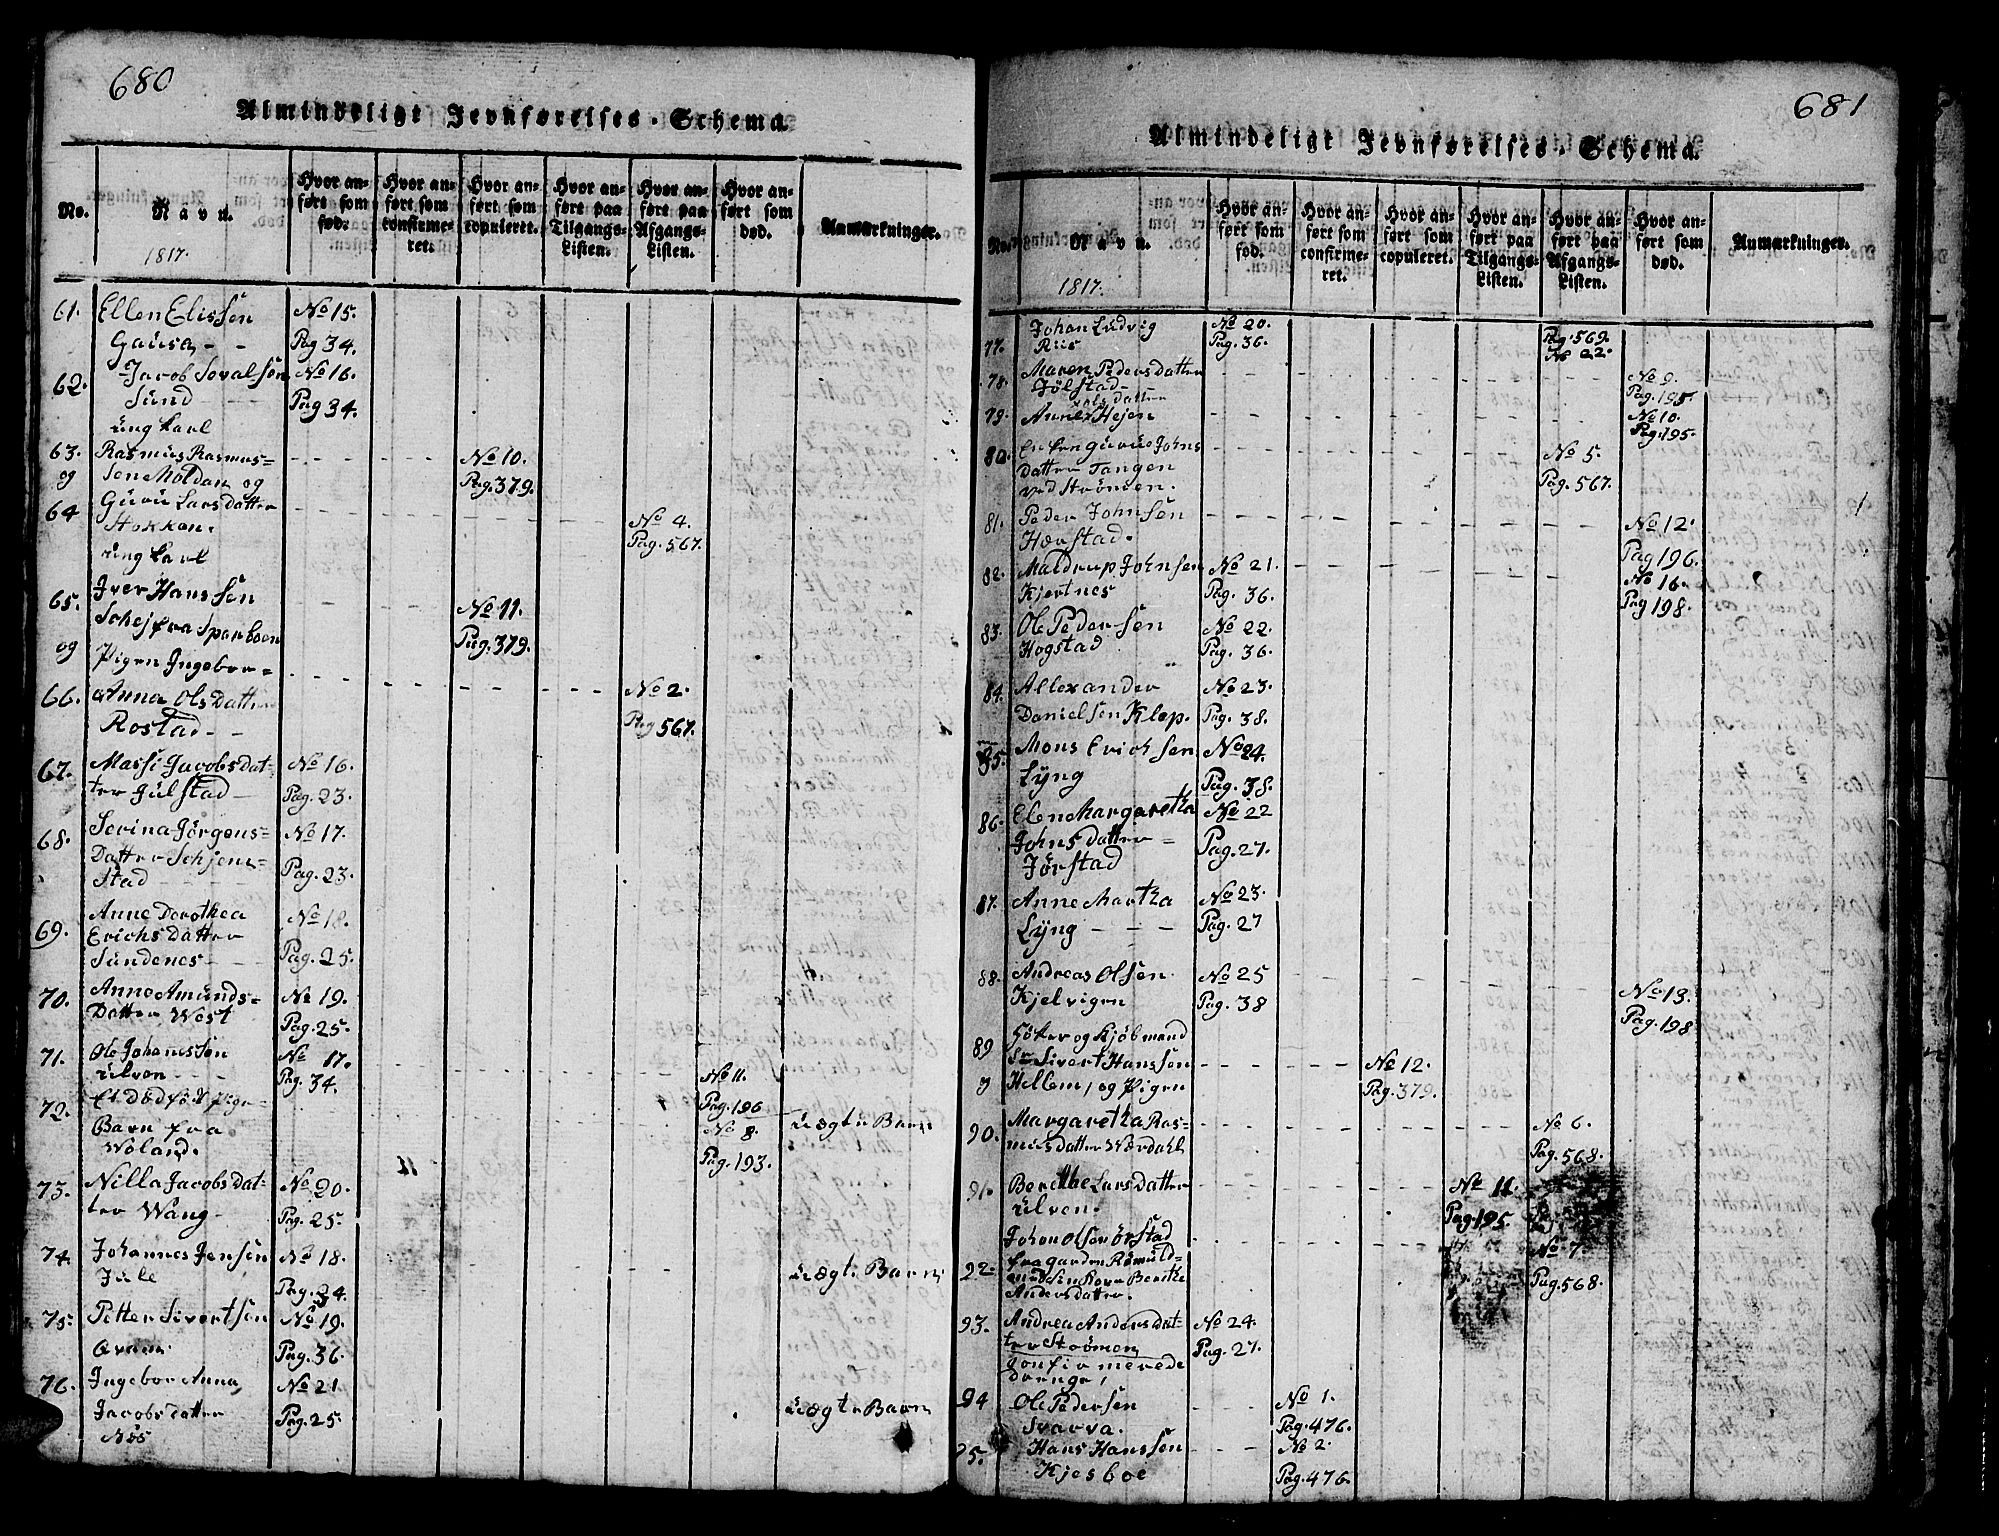 680
Almindeligt Jevnførelses-Schema.
No.
Navn.
1817.
Hvor anført som fød.
Hvor anført som confirmeret.
Hvor anført som copuleret.
Hvor anført paa Tilgangs-Listen.
Hvor anført paa Afgangs-Listen.
Hvor anført som død.
Anmærkninger.
61. Ellen Elissen No 15.
Gausen - - Pag 34.
62. Jacob No 16.
Sund Pag 34.
ungkarl
63. Rasmus Rasmus= No 10.
og sen Moldan og Pag. 379.
64 Guru Lars datter No 4.
Hokken. Pag. 567.
ungkarl
65. Iver Hanssen No 11.
Schej fra Sparboen Pag. 379.
og Pigen Ingebor=
66. Anna Olsdatter No 2.
Rostad - - Pag 567.
67. Massi Jacobsdat- No 16.
ter Julstad - Pag. 23.
68. Serina Jörgens= No 17.
Datter Schjem= Pag. 23.
stad
69. Anne Dorothea No 18.
Erichs Datter Pag. 25.
Sundenes -
70. Anne Amunds- No 19.
Datter West Pag. 25.
71. Ole Johanissen No 17. No 11.
Ulven - - - Pag. 34. Pag. 196
72. Et dødfød Pige- No 8. uægte Barn
Barn fra Pag. 193.
Woland.
73. Nilla Jacobs dat- No 20.
ter Wang - Pag. 25.
74. Johannes Jensen No 18. uægte Barn
Jule Pag. 34.
75. Petter Sivertsen No 19.
Qvam. Pag. 36.
76. Ingebor Anna No 21 uægte Barn
Jacobs datter Pag. 25.
Næs
681
Almindeligt Jevnførelses-Schema.
No.
Navn.
1817.
Hvor anført som fød.
Hvor anført som confirmeret.
Hvor anført som copuleret.
Hvor anført paa Tilgangs-Listen.
Hvor anført paa Afgangs-Listen.
Hvor anført som død.
Anmærkninger.
77. Johan Ludvig No 20. Pag. 569.
Riis Pag. 36. No 22.
78. Maren Pedersdatter No 9.
Jölstad - Pag. 195.
79. Anne Olsdatter Hejen No 10.
Pag. 195.
80. Enken Guru Johns No 5.
datter Tangen Pag. 567.
ved Strömen.
81. Peder Johnsen No 12.
Hærstad. Pag 196.
82. Maldrup Johnsen No 21. No 16.
Kjertnes Pag. 36. Pag 198.
83. Ole Pedersen No 22.
Hogstad Pag. 36.
84. Allexander No 23.
Danielsen Klep. Pag. 38.
85. Mons Erichsen No 24.
Lÿng Pag. 38.
86. Elen Margaretha No 22
Johnsdatter = Pag. 27.
Jörstad
87. Anne Martha No 23.
Lÿng - - - Pag. 27
88. Andreas Olsen No 25 No 13.
Kjelvigen Pag. 38 Pag. 198
89 og Kjöbmand
Sr Sivert Hanssen No 12.
og Hellem, og Pigen Pag. 379.
90. Margaretha Ras- No 6.
musdatter Wærdahl Pag. 568.
91. Berethe Lars datter No 11.
Ulven. Pag. 195.
Johan Olsen Örstad No 7.
92. fra gaarden Romuld
med sin Kone Berethe Pag. 568.
Andersdatter.
93. Andrea Andersdat- No 24.
ter Strömen Pag. 27.
Confirmerede
drenge,
94 Ole Pedersen No 1.
Svarva. Pag. 476.
95. Hans Hanssen No 2.
Kjesboe Pag. 476.